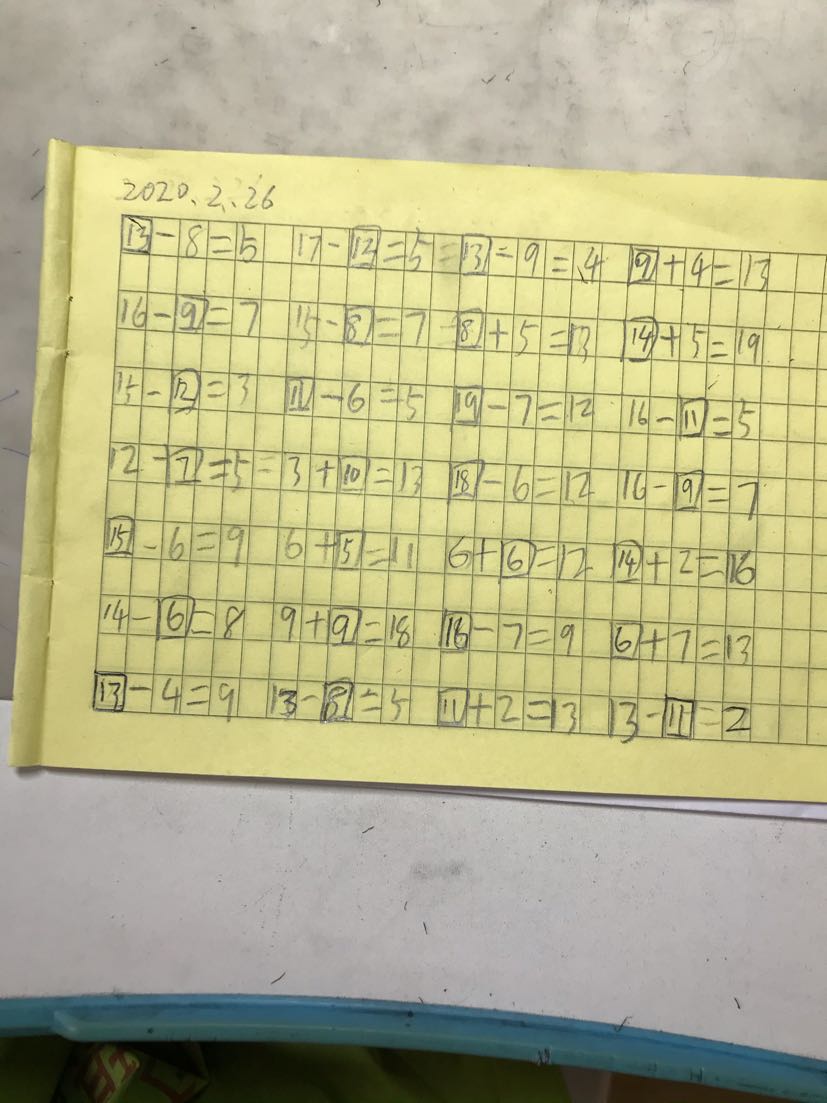 2020.2.26
13-8=5 17-12=5 13-9=4 9+4=13
16-9=7 15-8=7 8+5=13 14+5=19
15-12=3 11-6=5 19-7=12 16-11=5
12-7=5 3+10=13 18-6=12 16-9=7
15-6=9 6+5=11 6+6=12 14+2=16
14-6=8 9+9=18 16-7=9 6+7=13
13-4=9 13-8=5 11+2=13 13-11=2